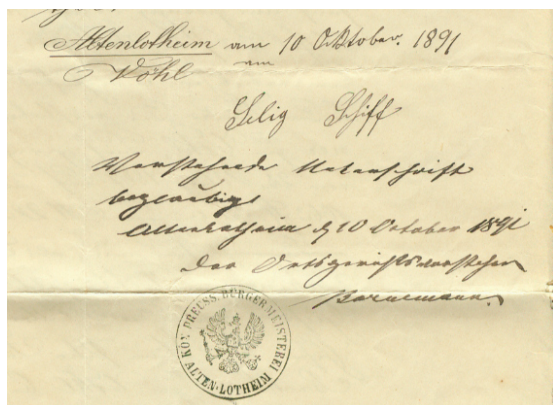 Altenlotheim am 10 Oktober. 1891
Vöhl
Selig Schiff
Vorstehende Unterschrift
beglaubigt
Altenlotheim d 10 October 1891
Der Ortsgerichtsvorsteher
Bornemann
KÖN. PREUSS. BÜRGERMEISTEREI
ALTEN-LOTHEIM